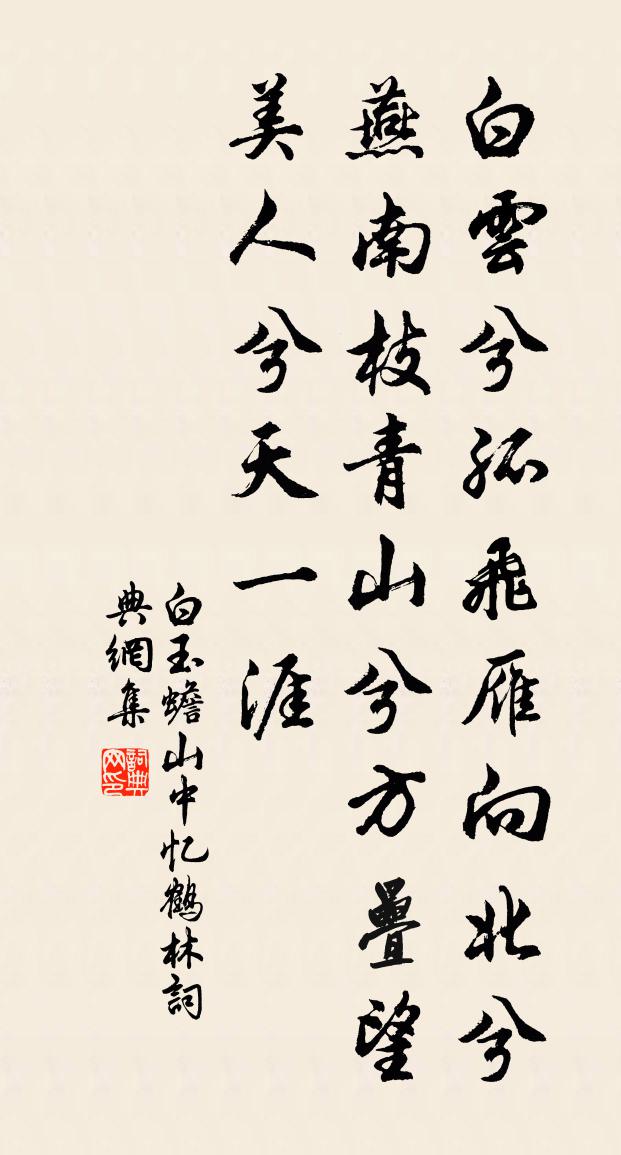 白雲兮孤飛雁向北兮
燕南枝青山兮方疊望
美人兮天一涯
白玉蟾山中忆鶴林詞
典網集
詞典網印